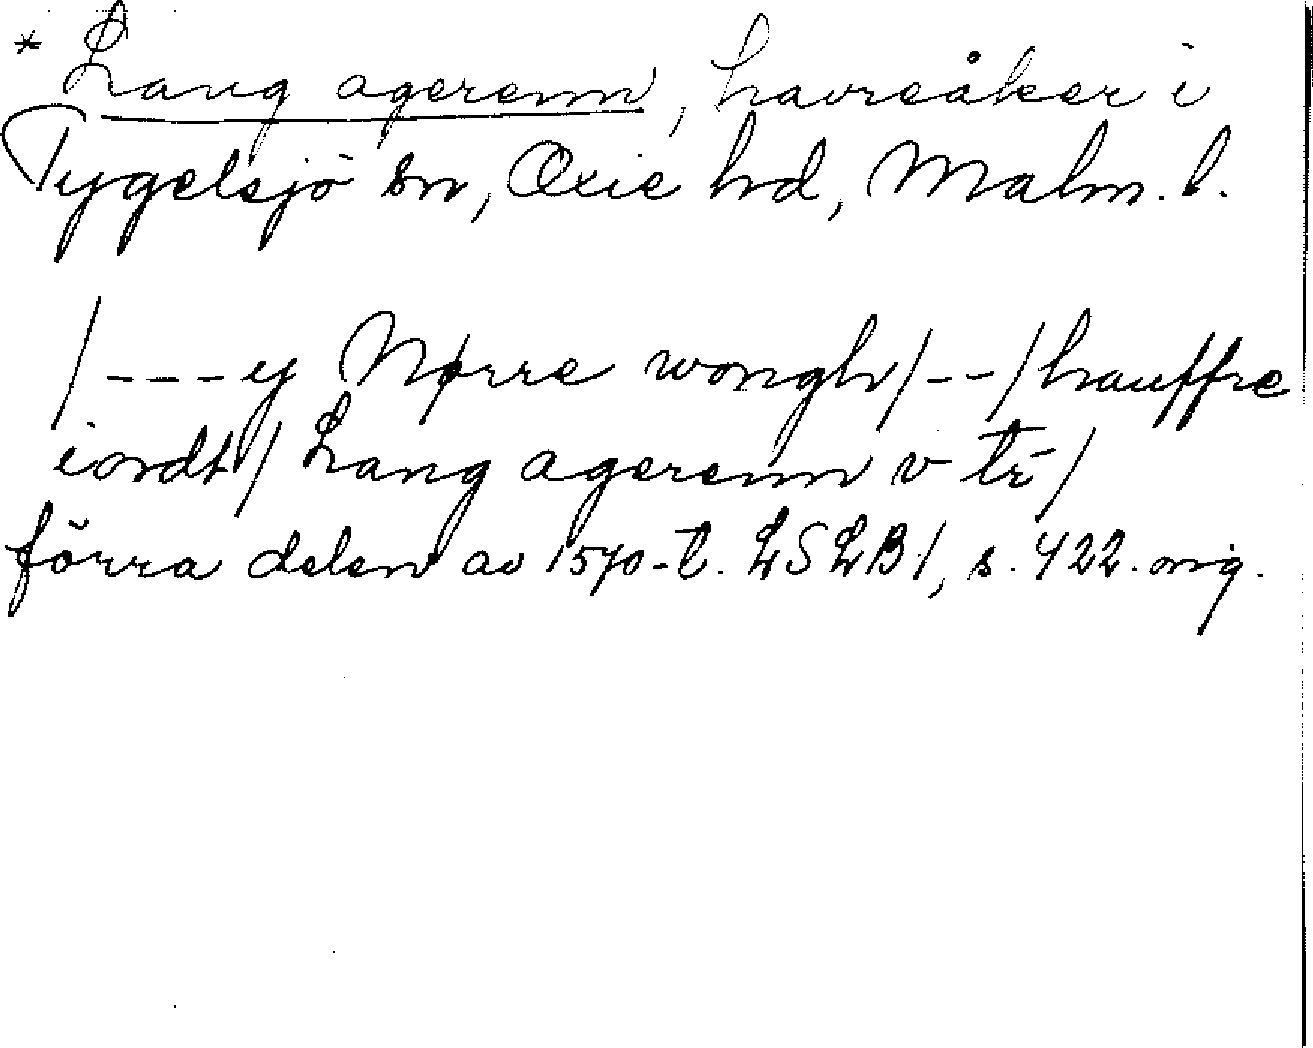 * Lang agerenn, havreåker i
Tygelsjö sn, Oxie hd, Malm. l.
/---y Nørre wongh/--/hauffre
iordt/ Lang agerenn v tr̄/
förra delen av 1570-t. LSLB1, s. 422. orig.